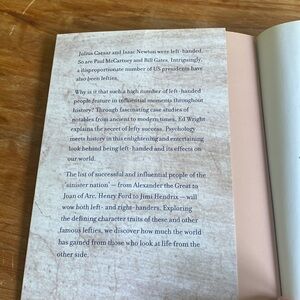 Julius Caesar and Isaac Newton were left-handed.
So are Paul McCartney and Bill Gates. Intriguingly,
a disproportionate number of US presidents have
also been lefties.
Why is it that such a high number of left-handed
people feature in influential moments throughout
history? Through fascinating case studies of
notables from ancient to modern times, Ed Wright
explains the secret of lefty success. Psychology
meets history in this enlightening and entertaining
look behind being left-handed and its effects on
our world.
The list of successful and influential people of the
'sinister nation' — from Alexander the Great to
Joan of Arc, Henry Ford to Jimi Hendrix — will
wow both left- and right-handers. Exploring
the defining character traits of these and other
famous lefties, we discover how much the world
has gained from those who look at life from the
other side.